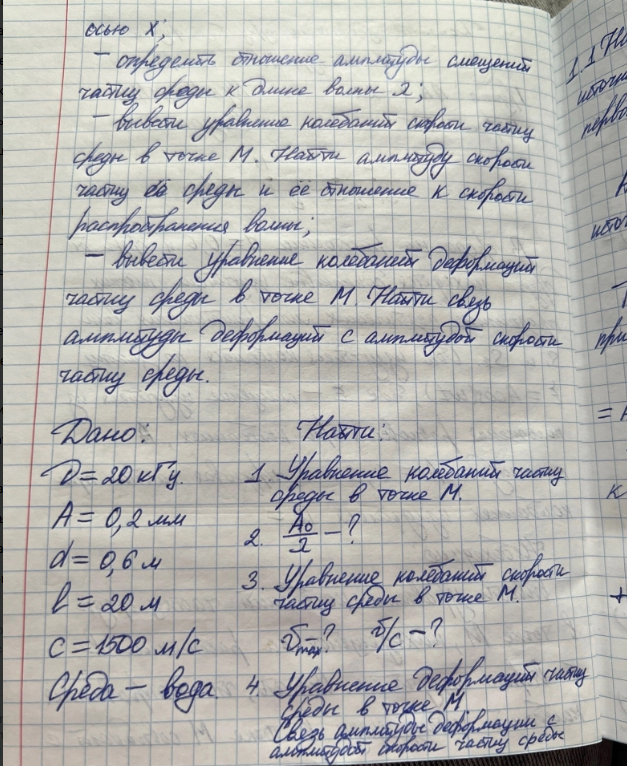 осью X;
- определить отношение амплитуды смещений
частиц среды к длине волны λ;
- вывести уравнение колебаний скорости частиц
среды в точке М. Найти амплитуду скорости
частиц среды и её отношение к скорости
распространения волны;
- вывести уравнение колебаний деформаций
частиц среды в точке М. Найти связь
амплитуды деформаций с амплитудой скорости
частиц среды.
Дано:
ν = 20 кГц
A = 0,2 мм
d = 0,6 м
l = 20 м
c = 1500 м/с
Среда - вода.
Найти:
1. Уравнение колебаний частиц
среды в точке М.
2. A₀/λ - ?
3. Уравнение колебаний скорости
частиц среды в точке М.
υmax - ? υ/c - ?
4. Уравнение деформаций частиц
среды в точке М.
Связь амплитуды деформации с
амплитудой скорости частиц среды
1.1
источ
перво
источ
при
=
к
+